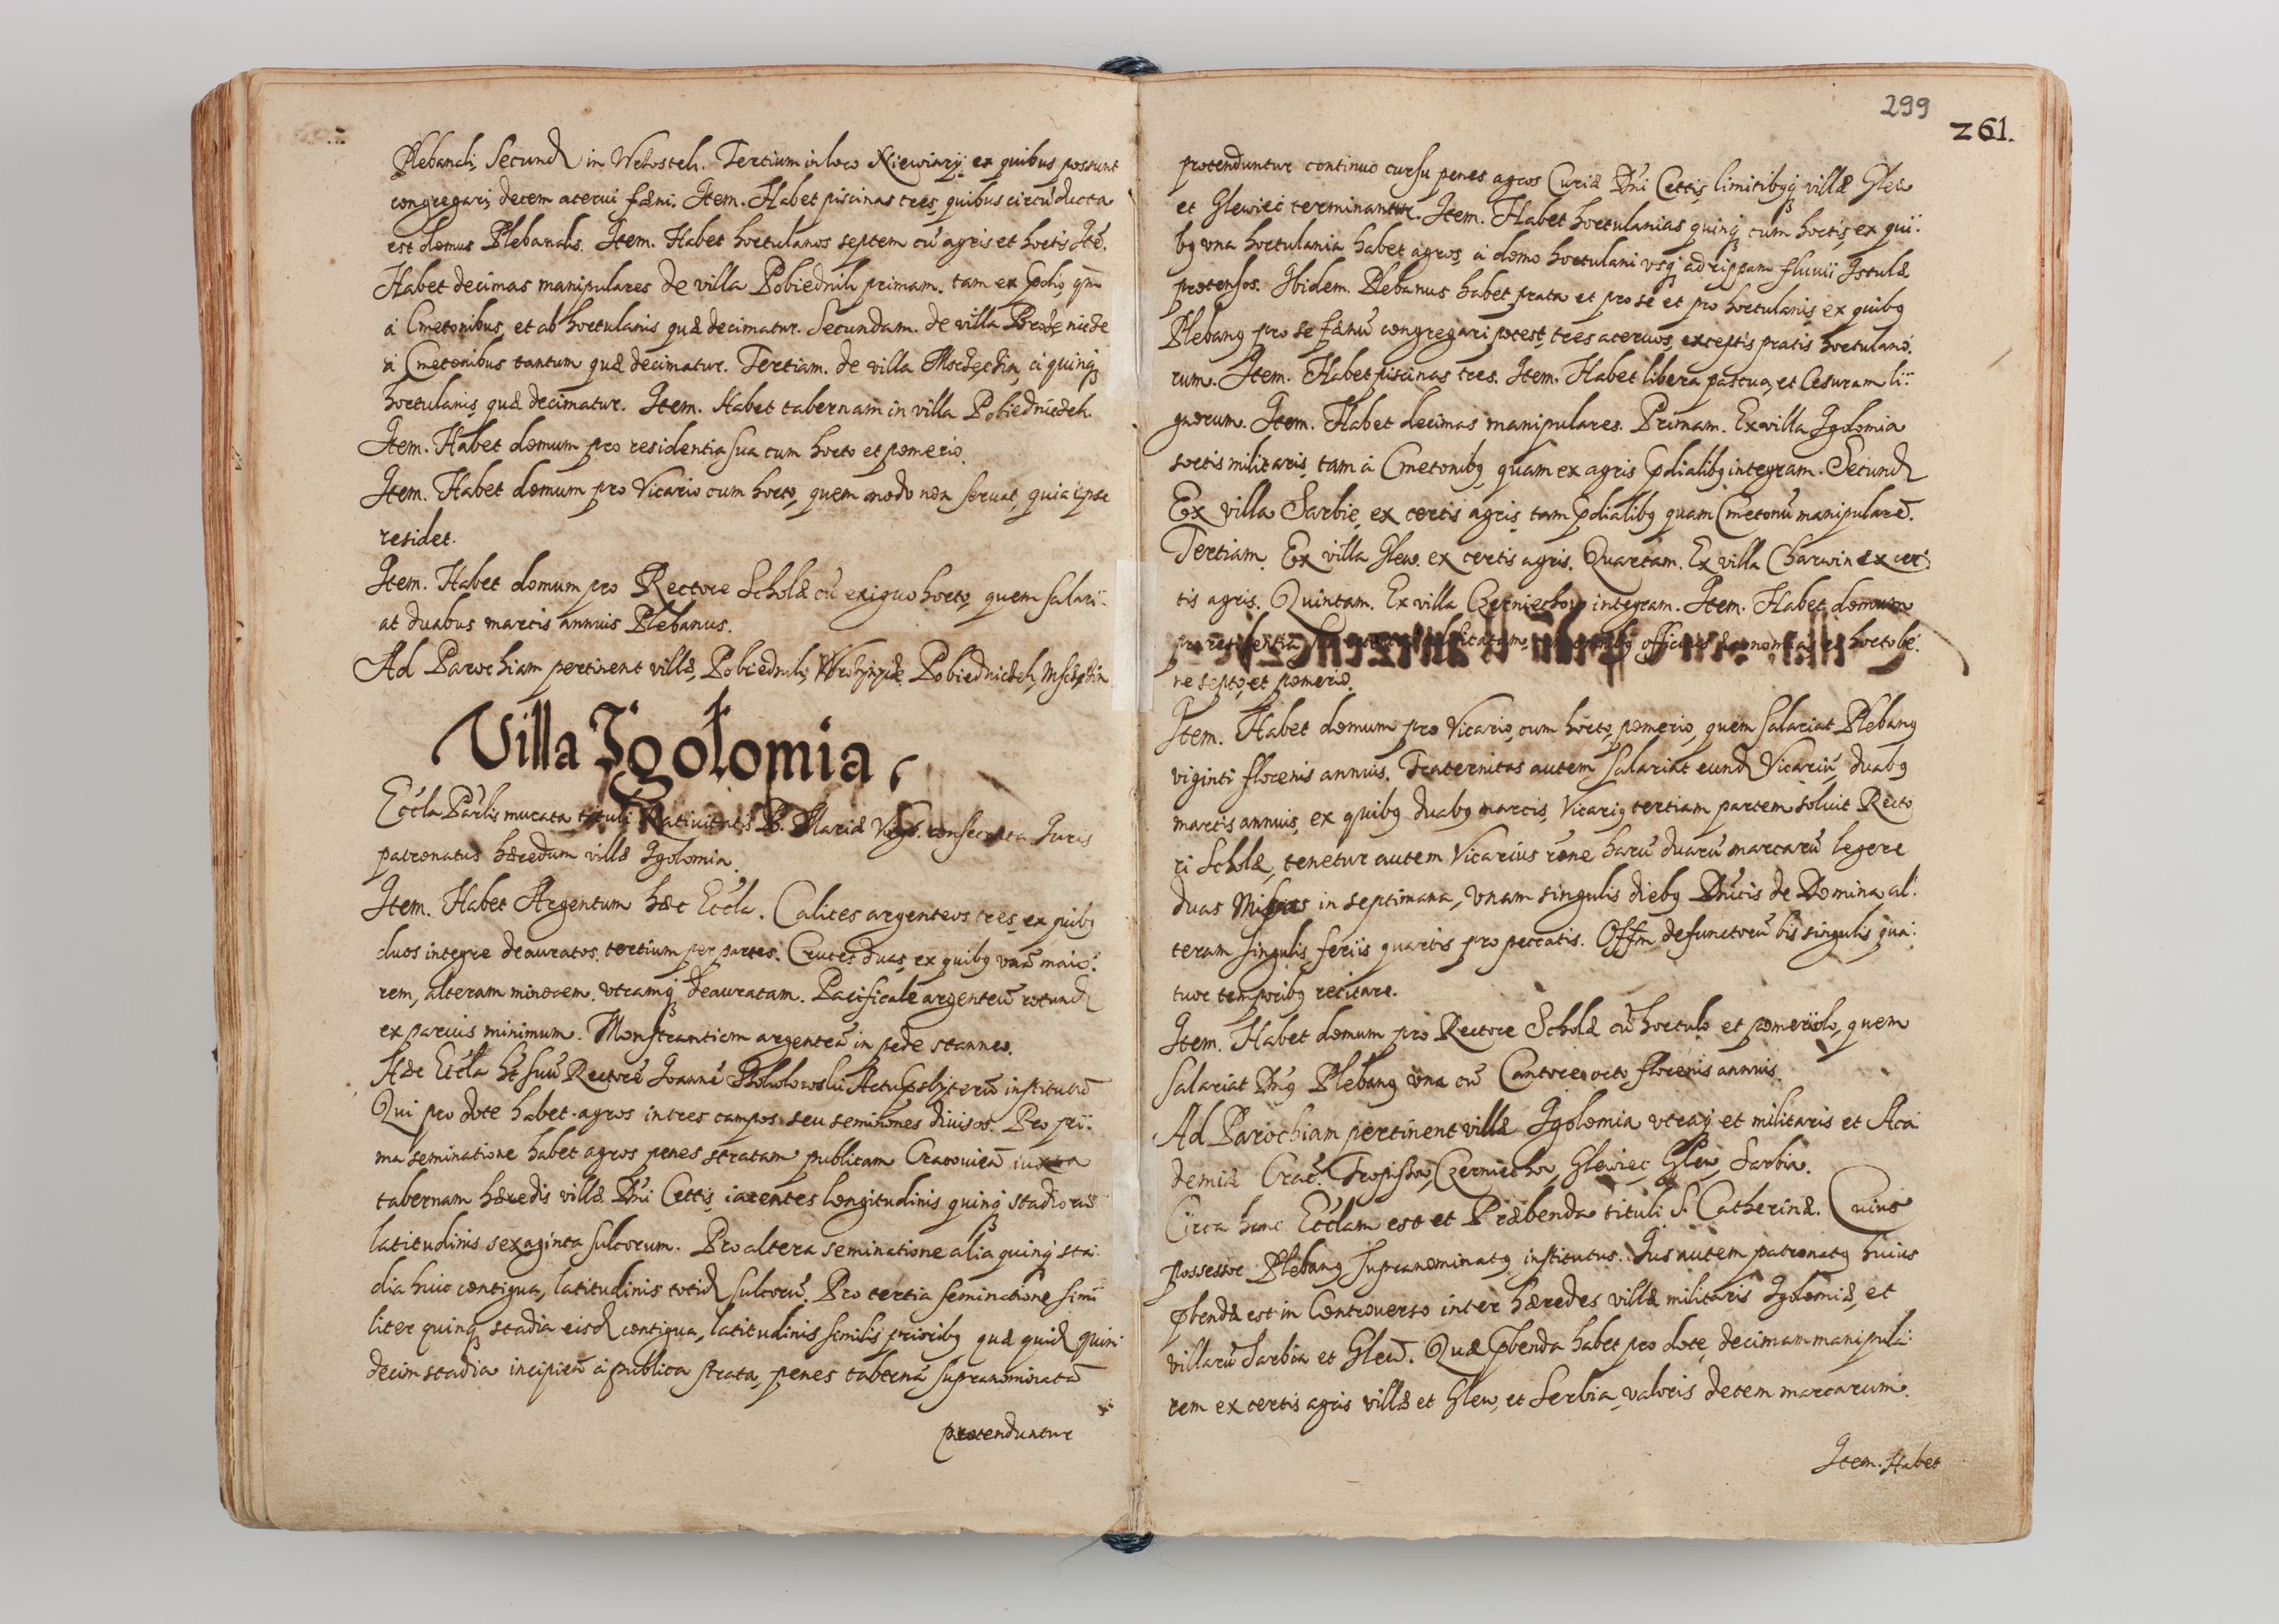 Plebanali, Secund in Wrbosteh. Tertium in loco Niewiary: ex quibus possunt
congregari, decem acerui fæni. Item. Habet piscinas tres, quibus circũducta
est domus Plebanalis. Item. Habet hortulanos septem cũ agris et hortis Itẽ.
Habet decimas manipulares de villa Pobiednik primam. tam ex
à Cmetonibus, et ab hortulanis quæ decimatur. Secundam. de villa
à Cmetonibus tantum quæ decimatur. Tertiam. de villa à quinq
hortulanis quæ decimatur. Item. Habet tabernam in villa Pobiedniczek.
Item. Habet domum pro residentia sua cum horto et pomerio.
Item. Habet domum pro Vicario cum horto, quem modo non seruat, quia ipse
residet.
Item. Habet domum pro Rectore Scholæ cũ exiguo horto, quem salari:
at duabus marcis annuis Plebanus.
Ad Parochiam pertinent villæ, Pobiednik, Pobiedniczek,
Villa Igołomia,
Eccla Parlis murata tituli Natiuitatis B. Mariæ Virgs. consecrata Iuris
patronatus hæredum villæ Igolomia.
Item. Habet Argentum hæc Eccla. Calices argenteos tres, ex quibg
duos integre deauratos. tertium per partes. Cruces duas, ex quibg vnã maio:
rem, alteram minorem. vtramq deauratam. Pacificale argenteũ rotund
ex paruis minimum. Monstrantiam argenteã in pede stanneo.
Hæc Eccla ht suũ Rectorẽ Ioannẽ institutũ
Qui pro dote habet agros in tres campos seu seminiones diuisos. Pro pri:
ma seminatione habet agros penes stratam publicam Cracouieñ iuxta
tabernam hæredis villæ Dni Cettis iacentes longitudinis quinq stadiorũ
latitudinis sexaginta sulcorum. Pro altera seminatione alia quinq sta:
dia huic contigua, latitudinis totid sulcorũ. Pro tertia seminatione simi
liter quinq stadia eisd contigua, latitudinis similis prioribg quæ quid quin:
decim stadia incipieñ à publica strata, penes tabernã supranominatã
protenduntur
299
261.
protenduntur continuo cursu penes agros Curiæ Dni Cettis, limitibgq villæ Glew
et Glewiec terminantur. Item. Habet hortulanias quinq cum hortis, ex qui:
bg vna hortulania habet agros, à domo hortulani vsq ad rippam fluuii Istulæ
protensos. Ibidem. Plebanus habet prata et pro se et pro hortulanis, ex quibg
Plebang pro se fænũ congregari potest, tres aceruos, exceptis pratis hortulano:
rum. Item. Habet piscinas tres. Item. Habet libera pascua, et Cesuram li:
gnorum. Item. Habet decimas manipulares. Primam. Ex villa Igolomia
sortis militaris, tam à Cmetonibg, quam ex agris pdialibg integram. Secund
Ex villa Sarbie, ex certis agris, tam pdialibg quam Cmetonũ manipularẽ.
Tertiam. Ex villa Glew. ex certis agris. Quartam. Ex villa Charwin ex cer:
tis agris. Quintam. Ex villa Czerniechow integram. Item. Habet domum
pro residentia officinis et horto be:
ne septo, et pomerio.
Item. Habet domum pro Vicario, cum horto, pomerio, quem salariat Plebang
viginti florenis annuis. Fraternitas autem salariat eund Vicariũ, duabg
marcis annuis, ex quibg duabg marcis, Vicarig tertiam partem soluit Recto
ri Scholæ, tenetur autem Vicarius rõne harũ duarũ marcarũ legere
duas Missas in septimana, vnam singulis diebg Dnicis de Domina, al:
teram singulis feriis quartis pro peccatis. Offm defunctorũ bis singulis qua:
tuor temporibg recitare.
Item. Habet domum pro Rectore Scholæ cũ hortulo et pomeriolo, quem
salariat Dng Plebang vna cũ Cantore octo florenis annuis.
Ad Parochiam pertinent villæ Igolomia vtraq et militaris et Aca:
demiæ Crac. Tropiszow, Czerniechow, Glewiec, Glew, Sarbia.
Circa hanc Ecclam est et Præbenda tituli S. Catherinæ. Cuius
possessor Plebang supranominatg institutus. Ius autem patronatg huius
pbendæ est in Controuerso inter hæredes villæ militaris Igolomiæ, et
villarũ Sarbia et Glew. Quæ pbenda habet pro dote, decimam manipula:
rem ex certis agris villæ et Glew, et Serbia, valoris decem marcarum.
Item. Habet